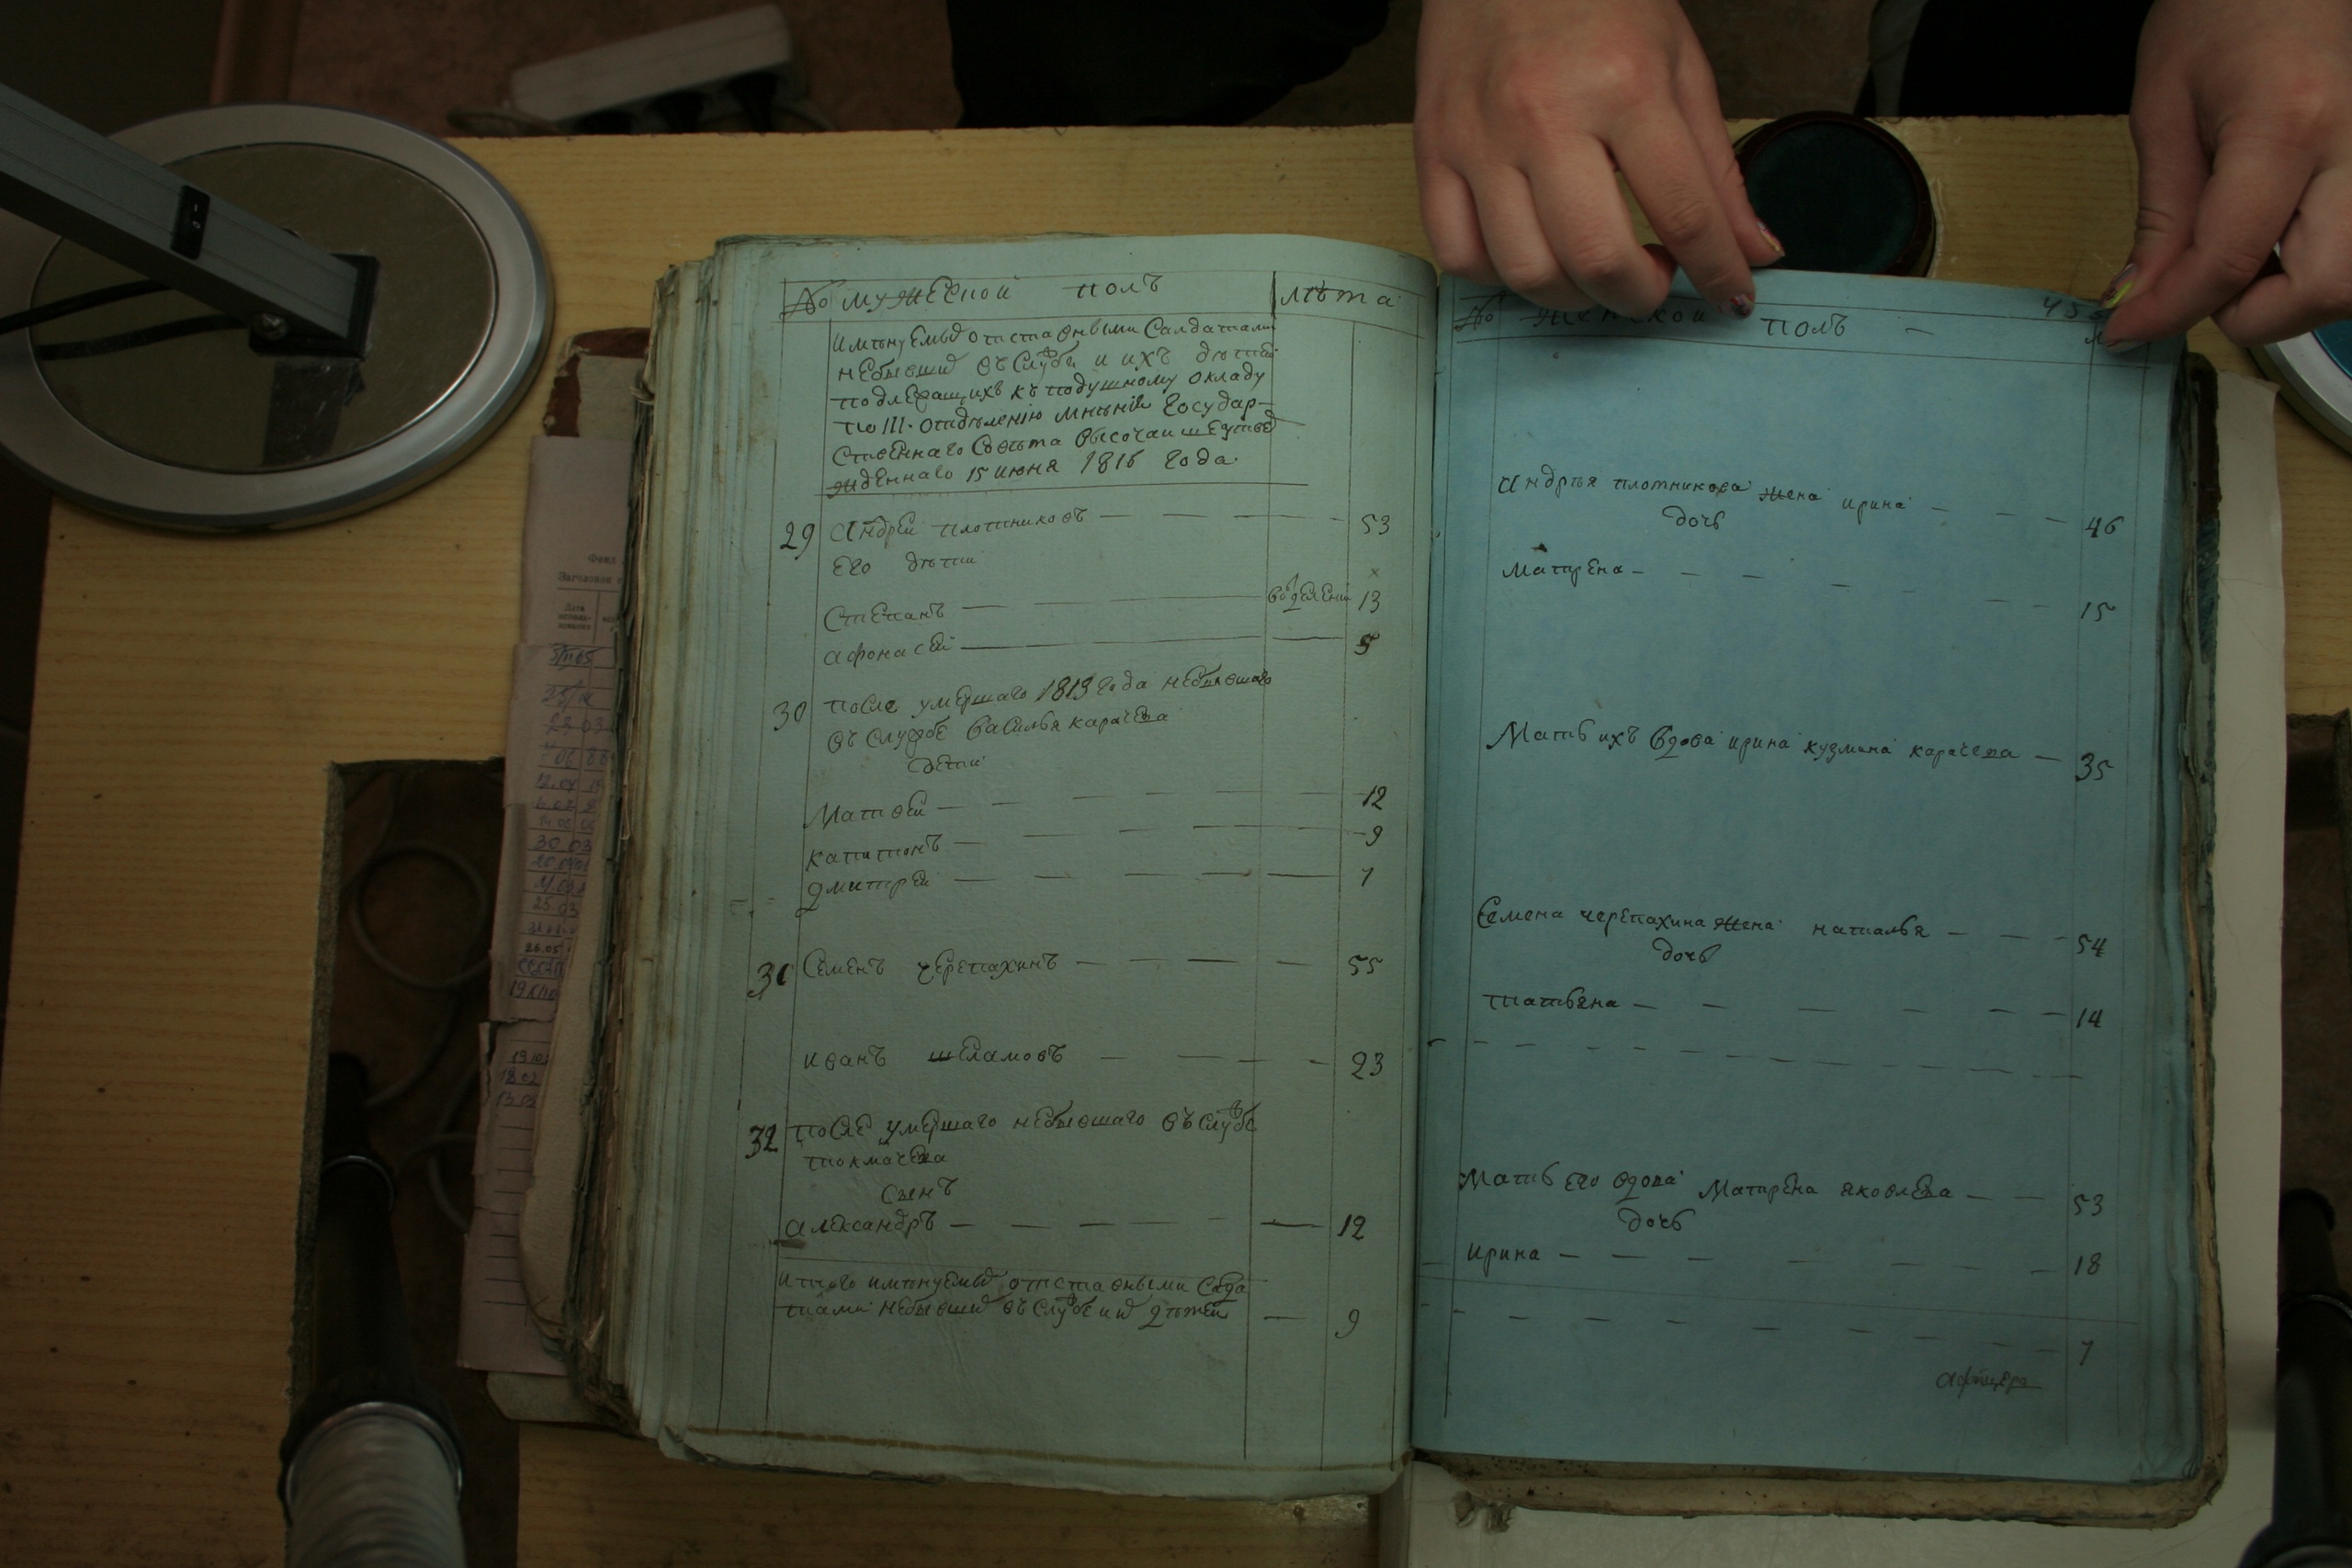 № мужеской полъ лѣта
имѣнуемых отставными Салдатами
небывших въ службе и ихъ дѣтей
подлежащихъ къ подушному окладу
по III. отдѣленію мнѣнія Государ-
ственнаго Совѣта высочайше утвер
жденнаго 15 июня 1816 года.
29 Андрей плотниковъ — — — 53
его дѣти
Степанъ — — 13
афонасей — — 5
30 после умершаго 1813 года небывшаго
въ службе василья карачева
дети
Матвей — — — — 12
капитонъ — — — — 9
дмитрей — — — — — 7
31 Семенъ черепахинъ — — — — 55
иванъ шеламовъ — — — — 23
32 после умершаго небывшаго въ службе
токмачева
сынъ
александръ — — — — — 12
итого имѣнуемых отставными Салда
тами небывших въ службе и их дѣтей — 9
№ Женской полъ —
Андрѣя плотникова жена ирина — — — 46
дочь
матрена — — — — — — 15
Мать ихъ вдова ирина кузмина карачева — 35
Семена черепахина жена наталья — — — 54
дочь
татьяна — — — — — — 14
Мать его вдова Матрена яковлева — — 53
дочь
ирина — — — — — — 18
— — — — — — — — 7